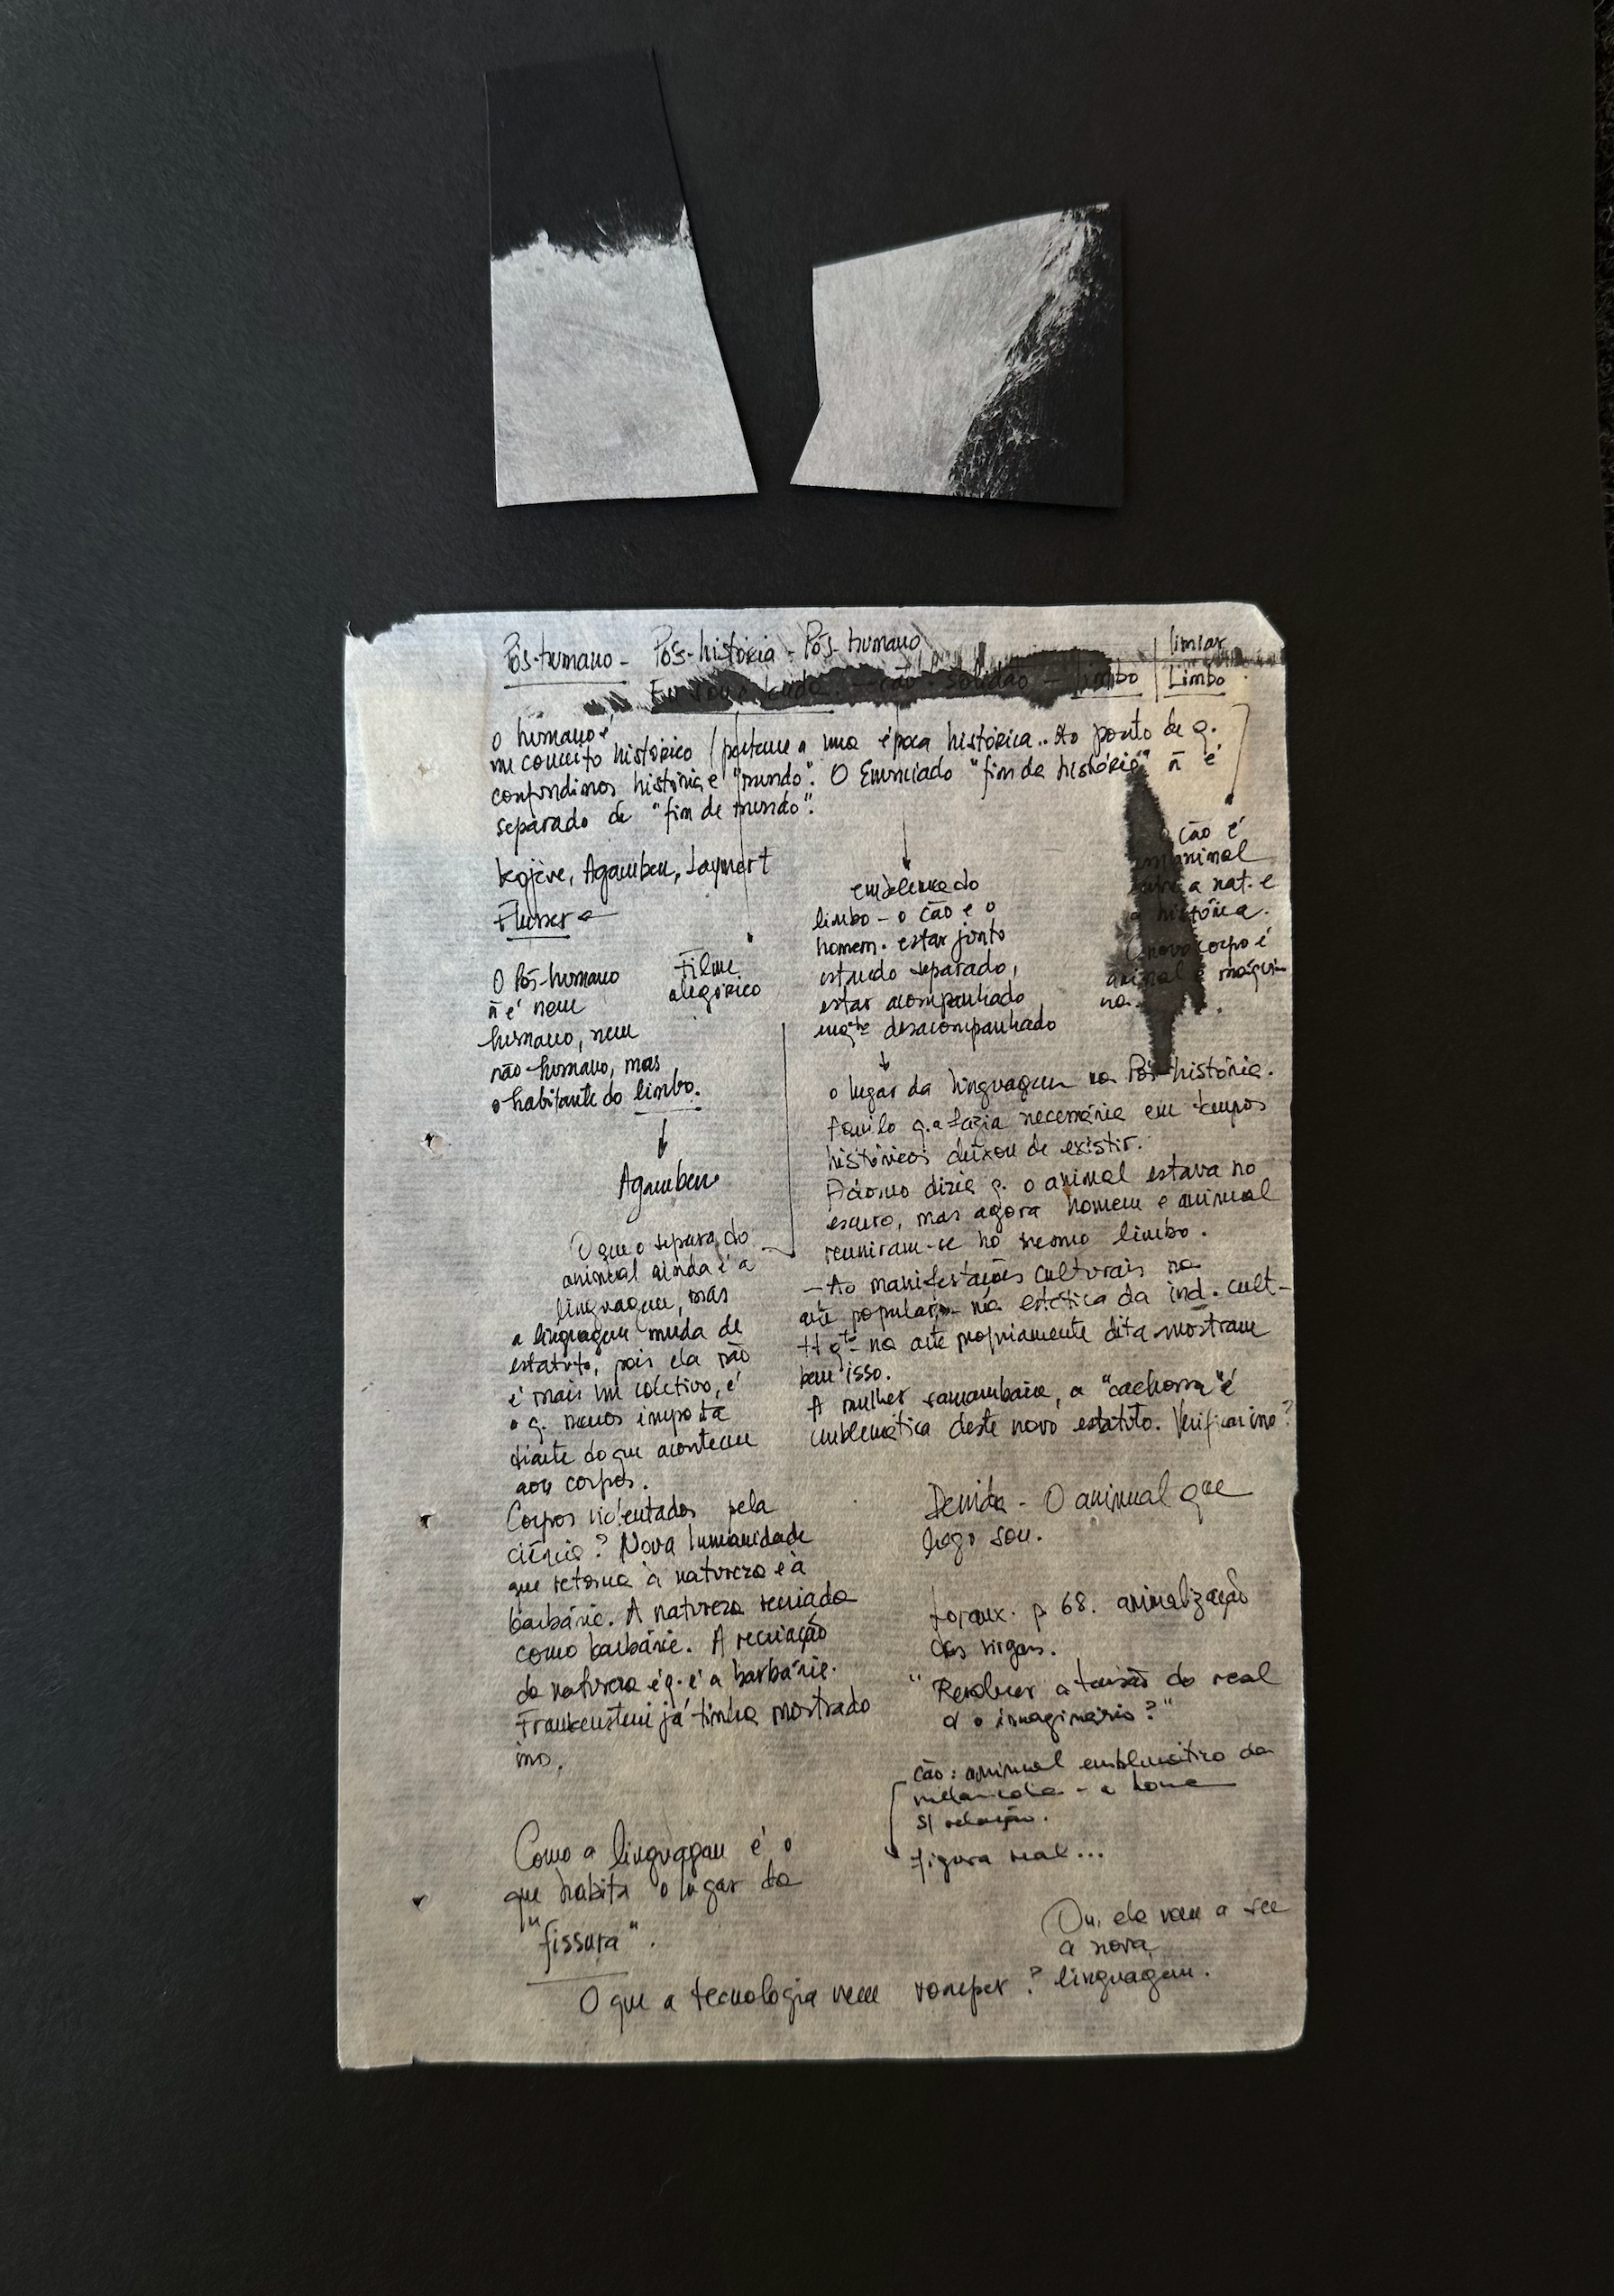 Pós-humano - Pós-história - Pós-humano
limiar
cão - solidão - limbo
Limbo
o humano é
um conceito histórico / pertence a uma época histórica.. Ao ponto de q.
confundimos história e "mundo". O Enunciado "fim da história" ñ é
separado de "fim de mundo".
Kojève, Agamben,
Flusser
O Pós-humano
ñ é nem
humano, nem
não-humano, mas
o habitante do limbo.
Filme
alegórico
emblema do
limbo - o cão e o
homem. estar junto
estando separado,
estar acompanhado
enqto desacompanhado
cão é
animal
a nat. e
a história.
novo corpo é
animal e máqui-
na.
Agamben
O que o separa do
animal ainda é a
linguagem, mas
a linguagem muda de
estatuto, pois ela não
é mais um coletivo, é
o q. menos importa
diante do que acontece
aos corpos.
Corpos violentados pela
ciência? Nova humanidade
que retorna à natureza e à
barbárie. A natureza recriada
como barbárie. A recriação
da natureza é q. é a barbárie.
Frankenstein já tinha mostrado
isso.
o lugar da linguagem na Pós-história.
Aquilo q. a fazia necessária em tempos
históricos deixou de existir.
Adorno dizia q. o animal estava no
escuro, mas agora homem e animal
reuniram-se no mesmo limbo.
- As manifestações culturais na
arte popular, na estética da ind. cult-
na arte propriamente dita mostram
bem isso.
A mulher samambaia, a "cachorra" é
emblemática deste novo estatuto. Verificar isso?
Derrida - O animal que
logo sou.
p 68. animalização
"Resolver a tensão do real
d o imaginário?"
cão: animal emblemático da
melancolia - a
s/ relação.
figura real...
Como a linguagem é o
que habita o lugar da
"fissura".
Ou, ela vem a ser
a nova
linguagem.
O que a tecnologia vem romper?